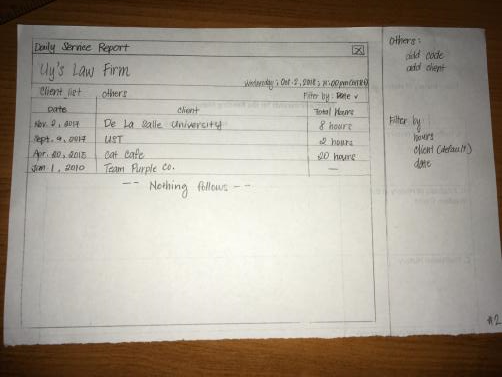 Daily Service Report X
Uy's Law Firm
Wednesday, Oct. 2, 2018;
Client list others Filter by: Date v
Date Client Total Hours
Nov. 2, 2017 De La Salle University 8 hours
Sept. 9, 2017 UST 2 hours
Apr. 20, 2015 Cat Cafe 20 hours
Jun 1, 2010 Team Purple Co. —
-- Nothing follows --
Others:
add code
add client
Filter by:
hours
client (default)
date
#2